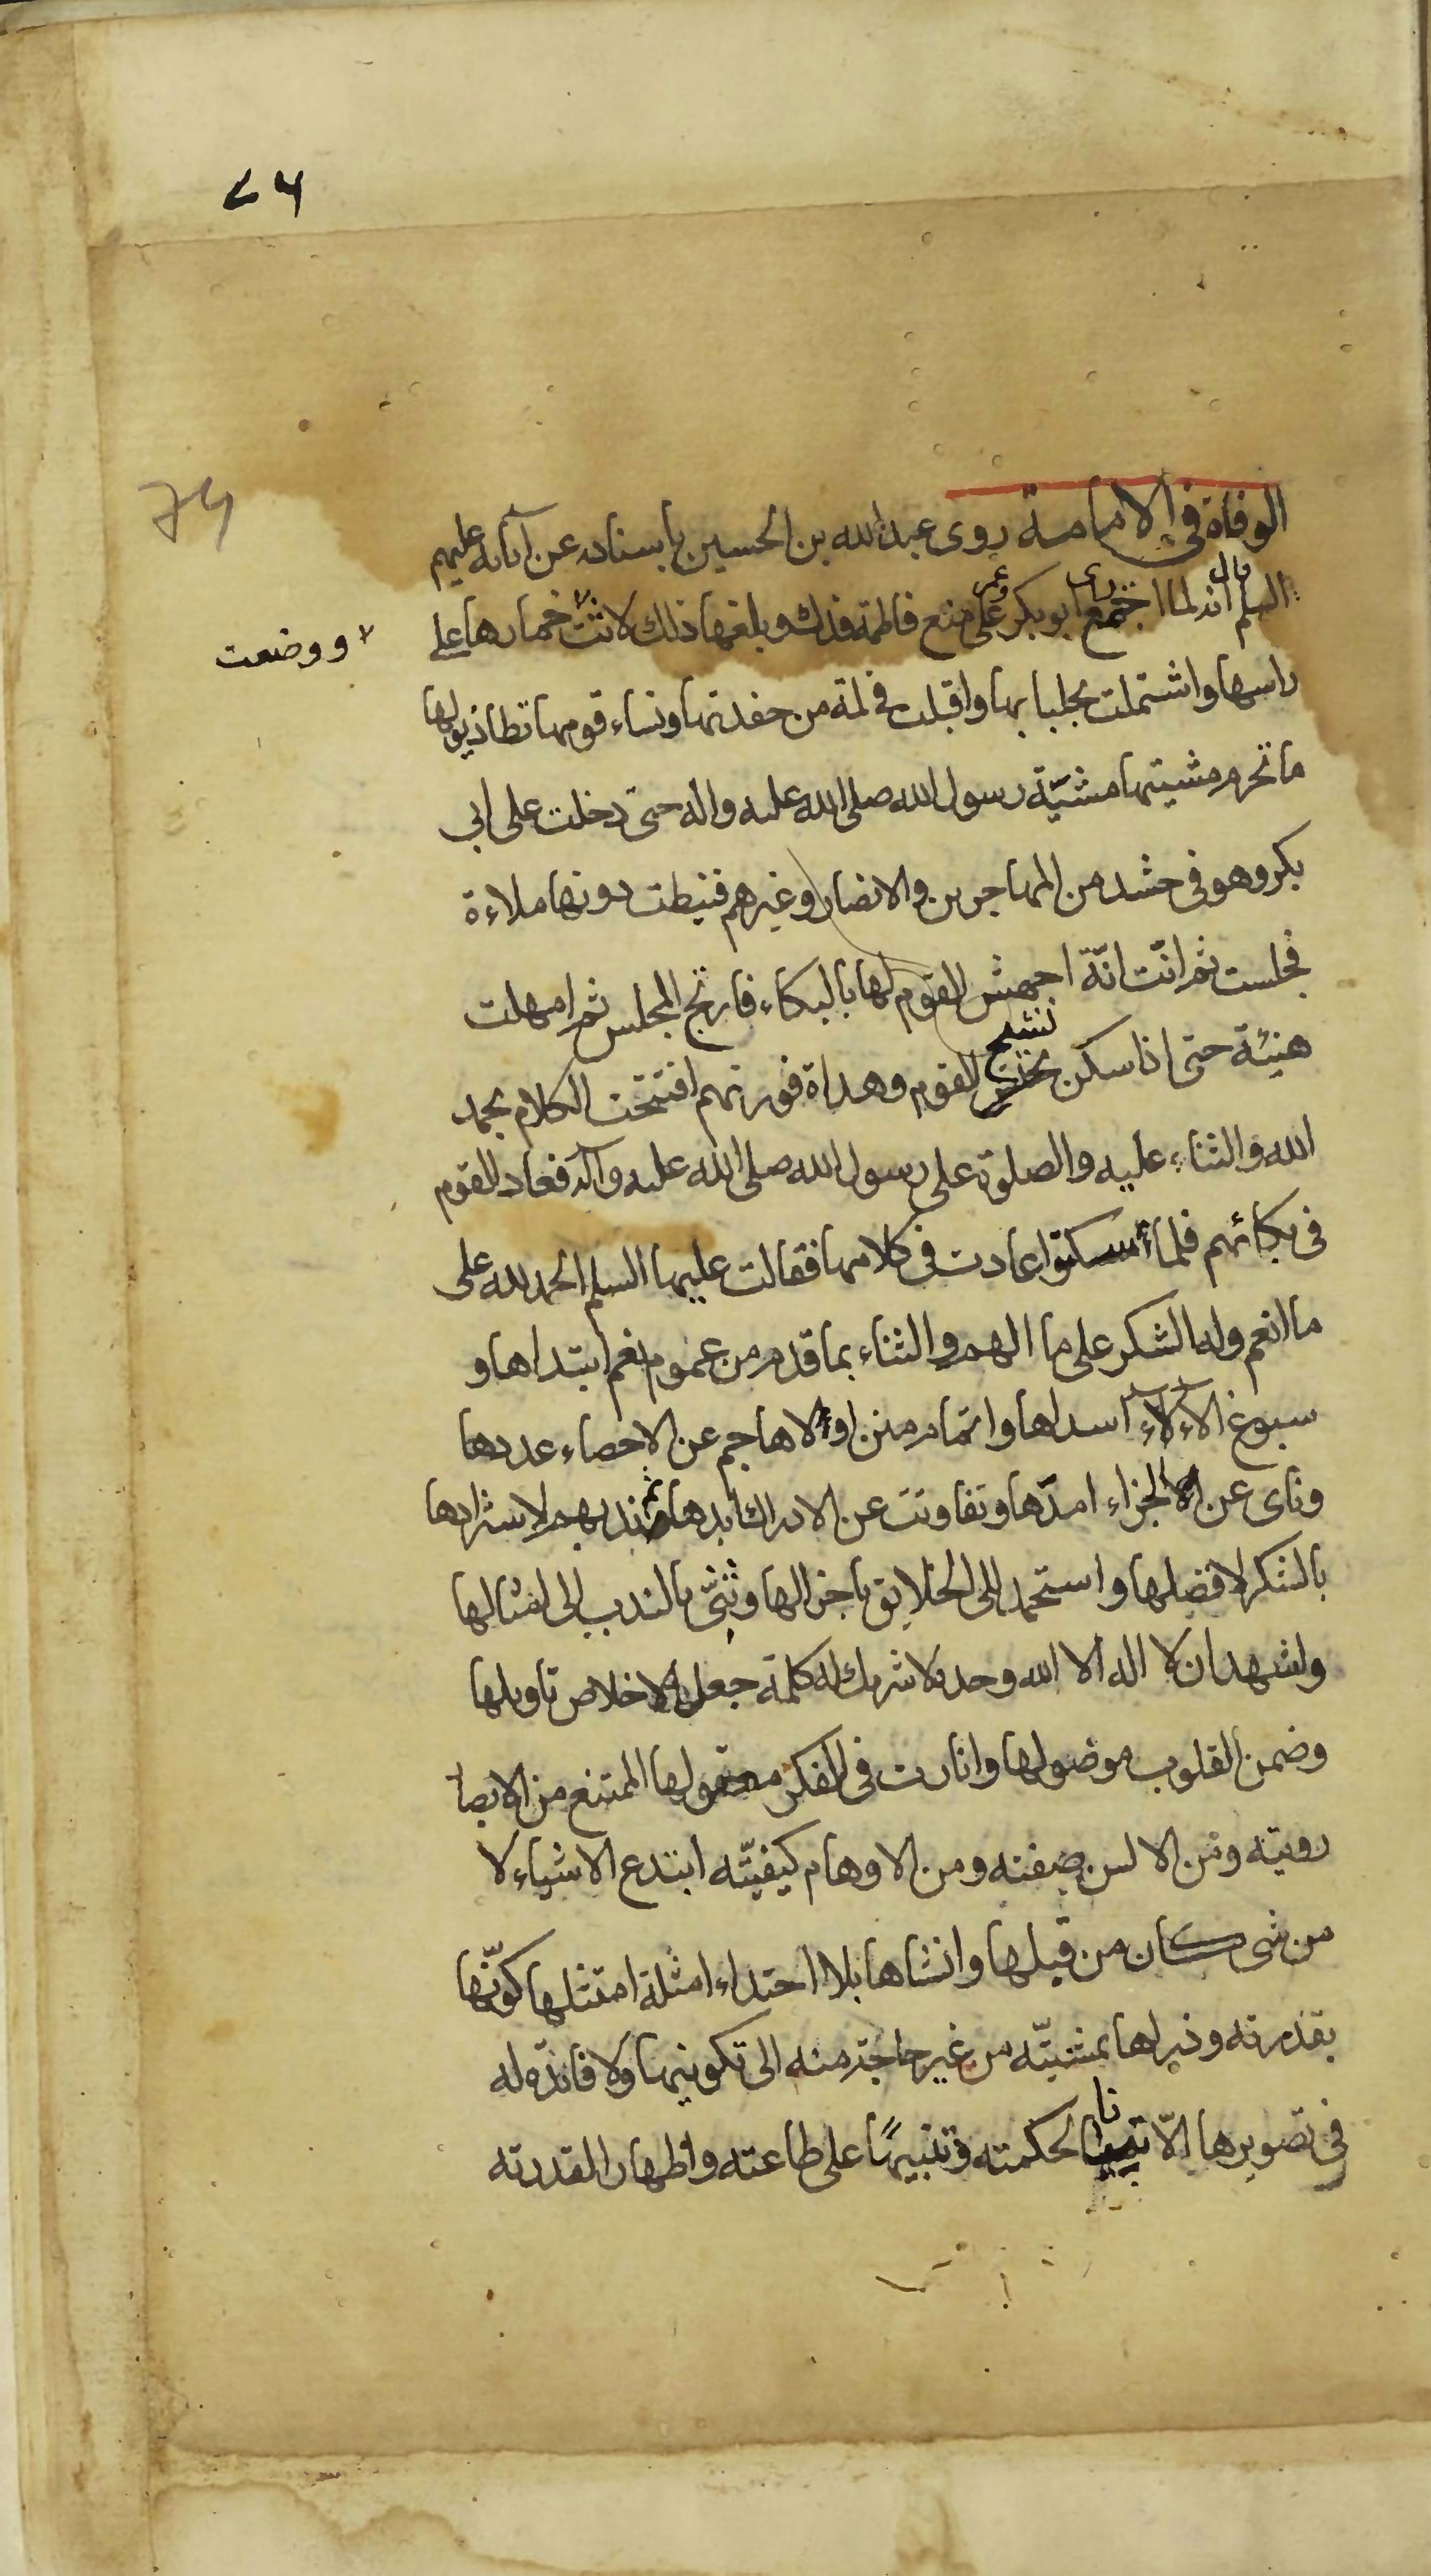 ٧٦
76
الوفاة فى الامامة روى عبد الله بن الحسين باسناده عن آبائه عليهم
السلم قال انه لما اجتمع راى ابو بكر وعمر على منع فاطمة فدك وبلغها ذلك لاثت خمارها على
ووضعت
راسها واشتملت بجلبابها واقبلت فى لمة من حفدتها ونساء قومها تطا ذيولها
ما تخرم مشيتها مشيّة رسول الله صلى الله عليه واله حتى دخلت على ابى
بكر وهو فى حشد من المهاجرين والانصار وغيرهم فنيطت دونها ملاءة
فجلست ثم انّت انّة اجهش القوم لها بالبكاء فارتج المجلس ثم امهلت
هنيئة حتى اذا سكن نشيج القوم وهداة فورتهم افتتحت الكلام بحمد
الله والثناء عليه والصلوة على رسول الله صلى الله عليه وآله فعاد القوم
فى بكائهم فلما امسكوا عادت فى كلامها فقالت عليها السلم الحمد لله على
ما انعم وله الشكر على ما الهم والثناء بما قدم من عموم نعم ابتداها و
سبوغ الاء اسداها واتمام منن اولاها جم عن الاحصاء عددها
وناى عن الجزاء امدّها وتفاوتت عن الادراك ابدها ثم ندبهم لاستزادتها
بالشكر لافضلها واستحمد الى الخلايق باجزالها وثنّى بالندب الى امثالها
واشهد ان لا اله الا الله وحده لا شريك له كلمة جعل الاخلاص تاويلها
وضمن القلوب موصولها وانارت فى الفكر معقولها الممتنع من الابصار
رويته ومن الالسن صفته ومن الاوهام كيفيّته ابتدع الاشياء لا
من شى كان من قبلها وانشاها بلا احتذاء امثلة امتثلها كوّنها
بقدرته وذراها بمشيّته من غير حاجة منه الى تكوينها ولا فائدّة له
فى تصويرها الّا تبيانا لحكمته وتنبيهًا على طاعته واظهارا لقدرته